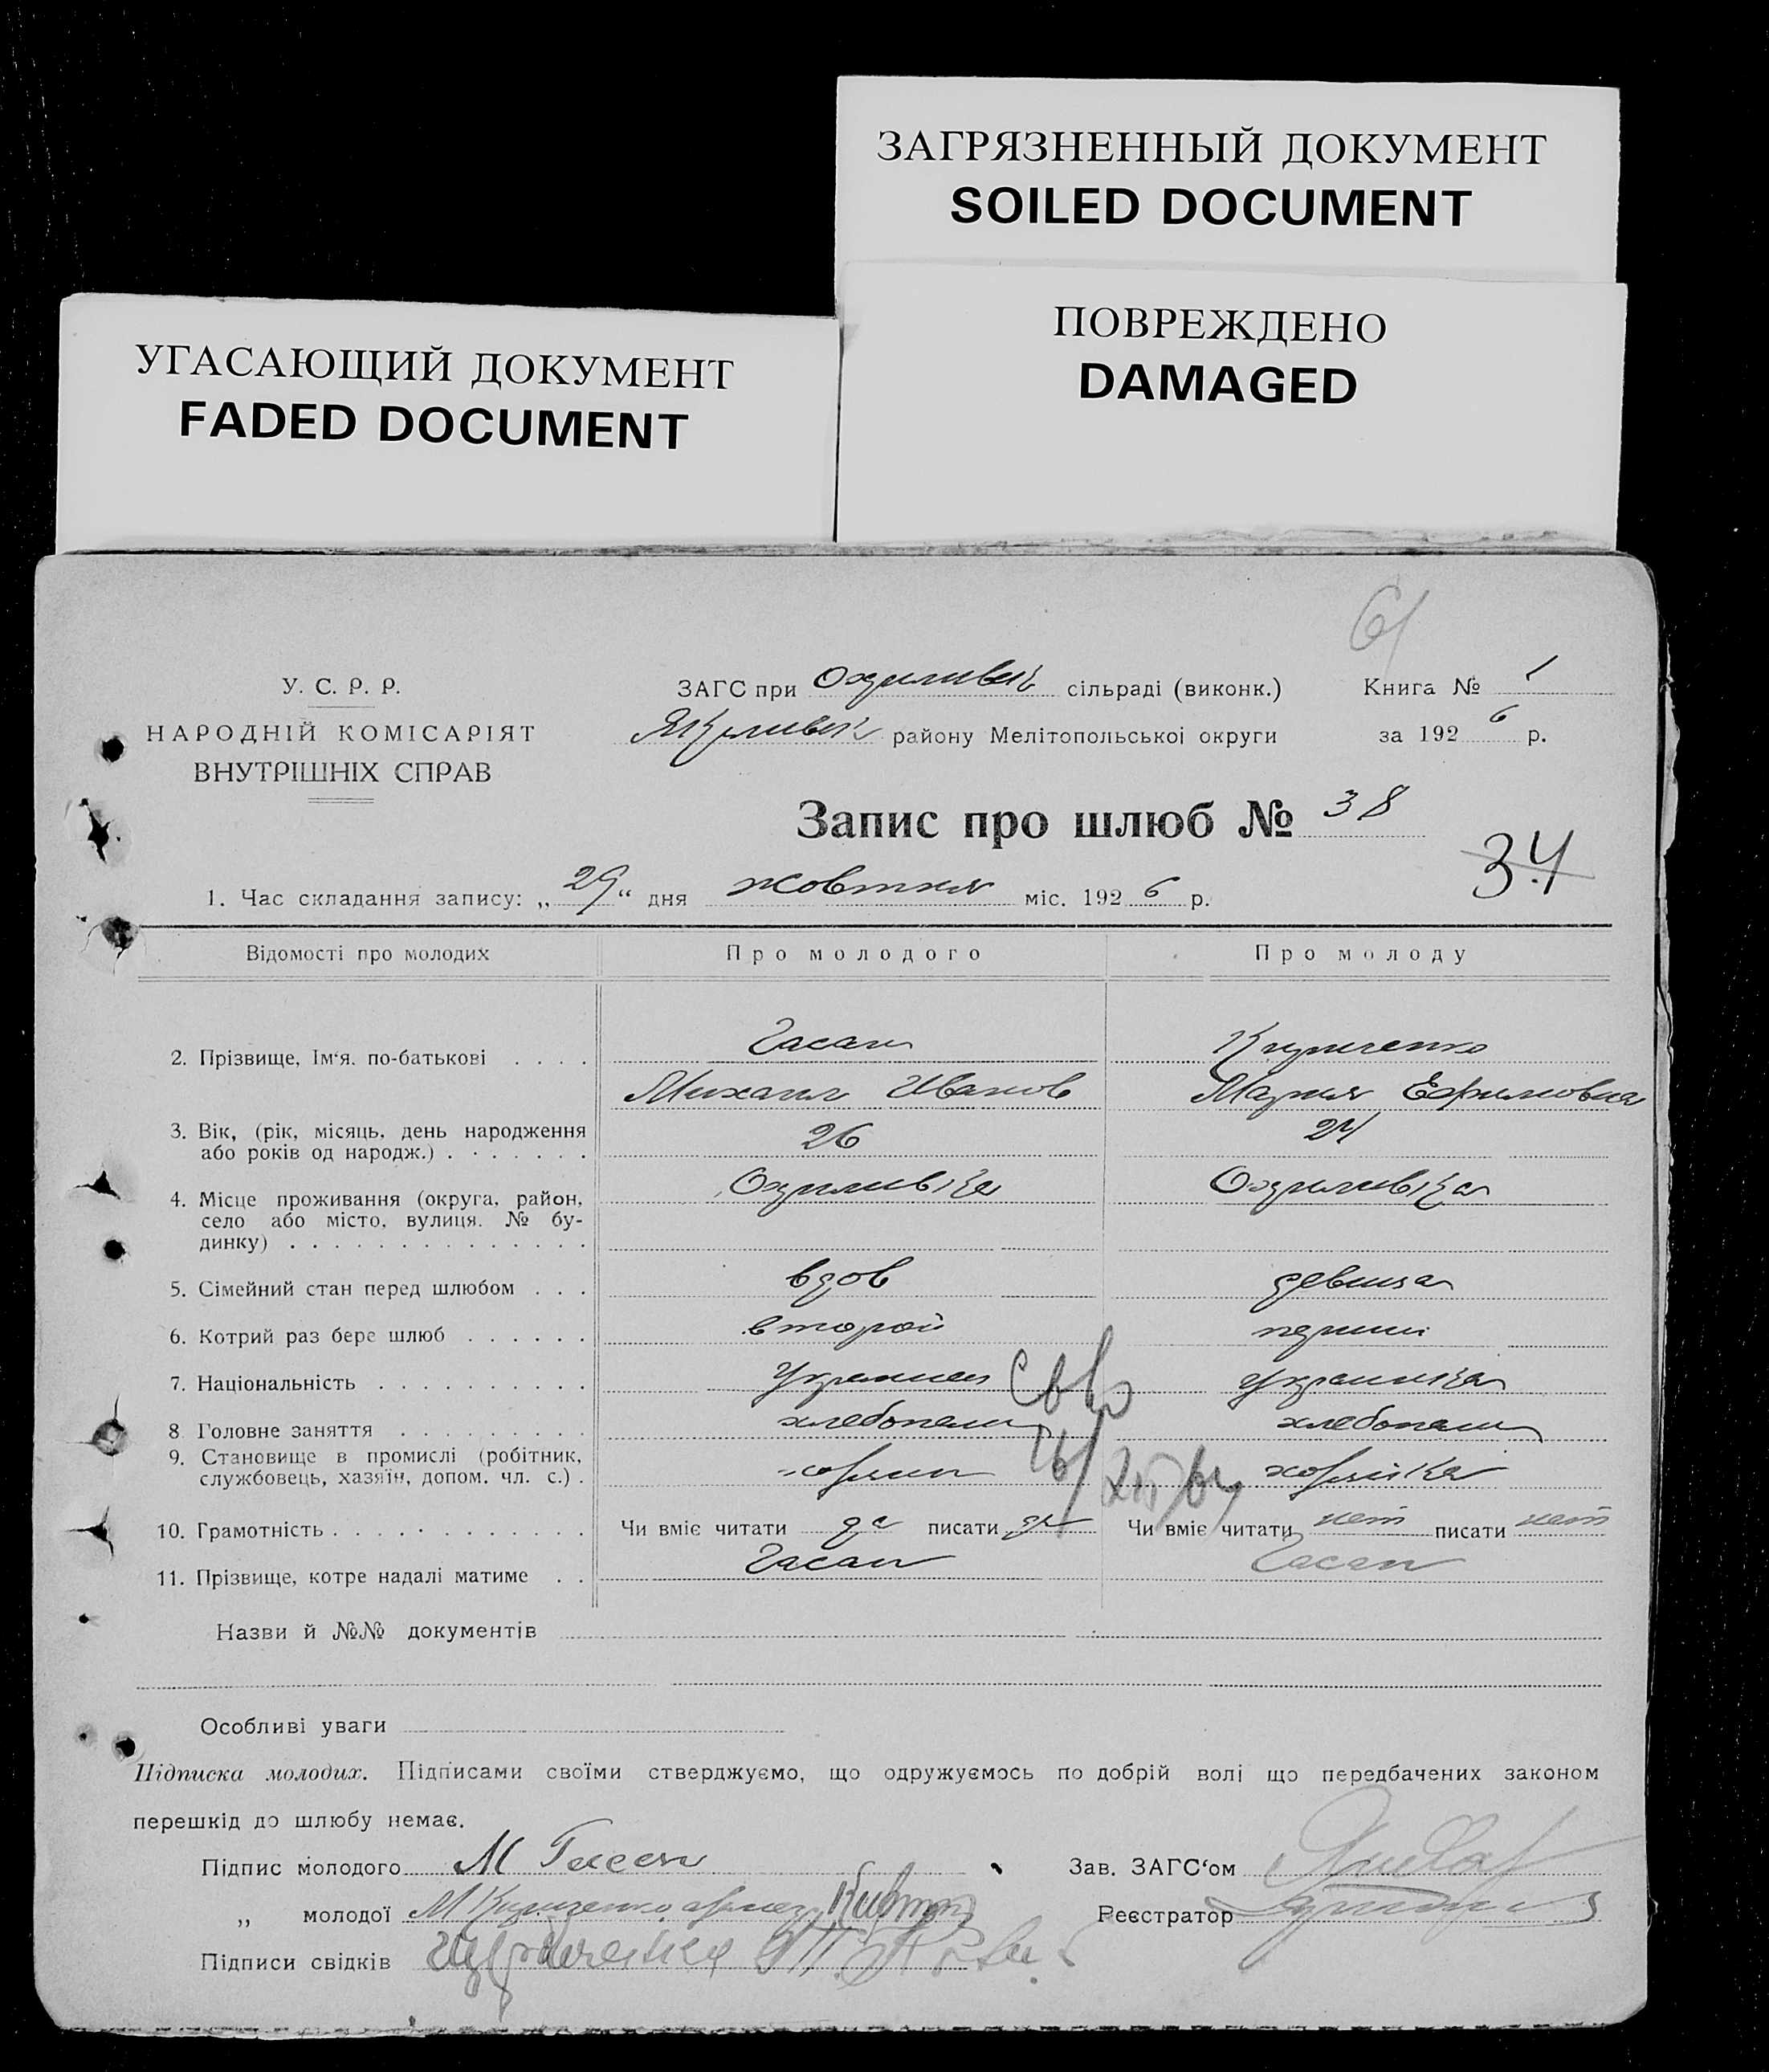 ЗАГРЯЗНЕННЫЙ ДОКУМЕНТ
SOILED DOCUMENT
ПОВРЕЖДЕНО
DAMAGED
УГАСАЮЩИЙ ДОКУМЕНТ
FADED DOCUMENT
У. С. Р. Р.
НАРОДНІЙ КОМІСАРІЯТ
ВНУТРІШНІХ СПРАВ
ЗАГС при сільраді (виконк.) Книга № 1
району Мелітопольської округи за 1926 р.
Запис про шлюб № 38
34
1. Час складання запису: „29“ дня жовтня міс. 1926 р.
Відомості про молодих Про молодого Про молоду
2. Прізвище, Ім‘я. по-батькові . . . . Гасан Кириченко
Михаил Иванов Мария Ефимовна
3. Вік, (рік, місяць, день народження
або років од народж.) . . . . . . . 26 24
4. Місце проживання (округа, район,
село або місто, вулиця. № бу-
динку) . . . . . . . . . . . . . .
5. Сімейний стан перед шлюбом . . . вдов девица
6. Котрий раз бере шлюб . . . . . . второй
7. Національність . . . . . . . . . . Украинец
8 Головне заняття . . . . . . . . . хлебопаш хлебопаш
9. Становище в промислі (робітник,
службовець, хазяїн, допом. чл. с.) .
10. Грамотність . . . . . . . . . . . . Чи вміє читати да писати да Чи вміє читати нет писати нет
11. Прізвище, котре надалі матиме . . Гасан Гасан
Назви й №№ документів
Особливі уваги
Підписка молодих. Підписами своїми стверджуємо, що одружуємось по добрій волі що передбачених законом
перешкід до шлюбу немає.
Підпис молодого М Гасан Зав. ЗАГС‘ом
„ молодої М Кириченко Реєстратор
Підписи свідків